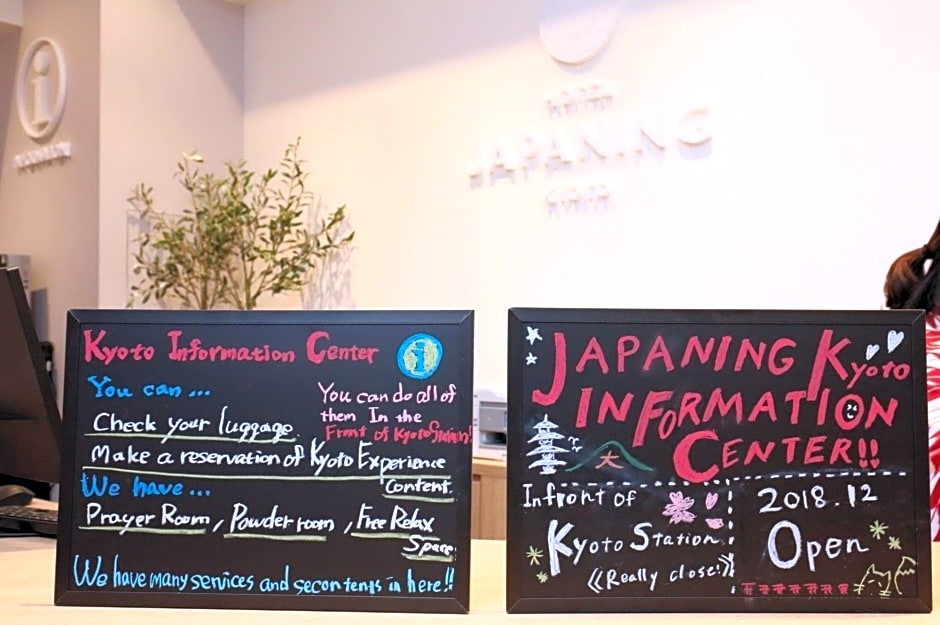 i
JAPANING
Kyoto Information Center
i
You can...
You can do all of
them In the
Front of Kyoto Station!
Check your luggage
Make a reservation of Kyoto Experience
Content.
We have...
Prayer Room, Powder room, Free Relax
Space
We have many services and secontents in here!!
JAPANING Kyoto
INFORMATION
CENTER!!
大
Infront of
Kyoto Station
《Really close!》
2018.12
Open